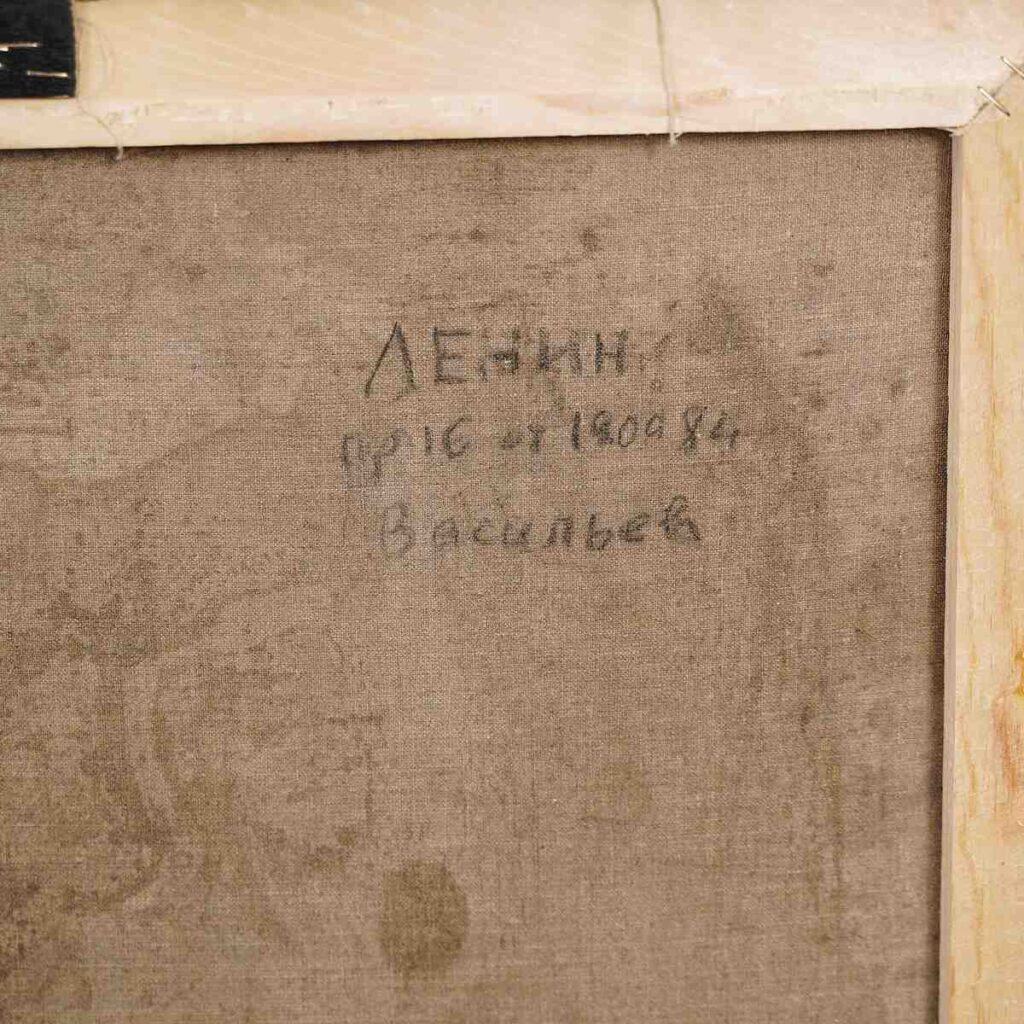 ЛЕНИН
пр 16 от 190984
Васильев